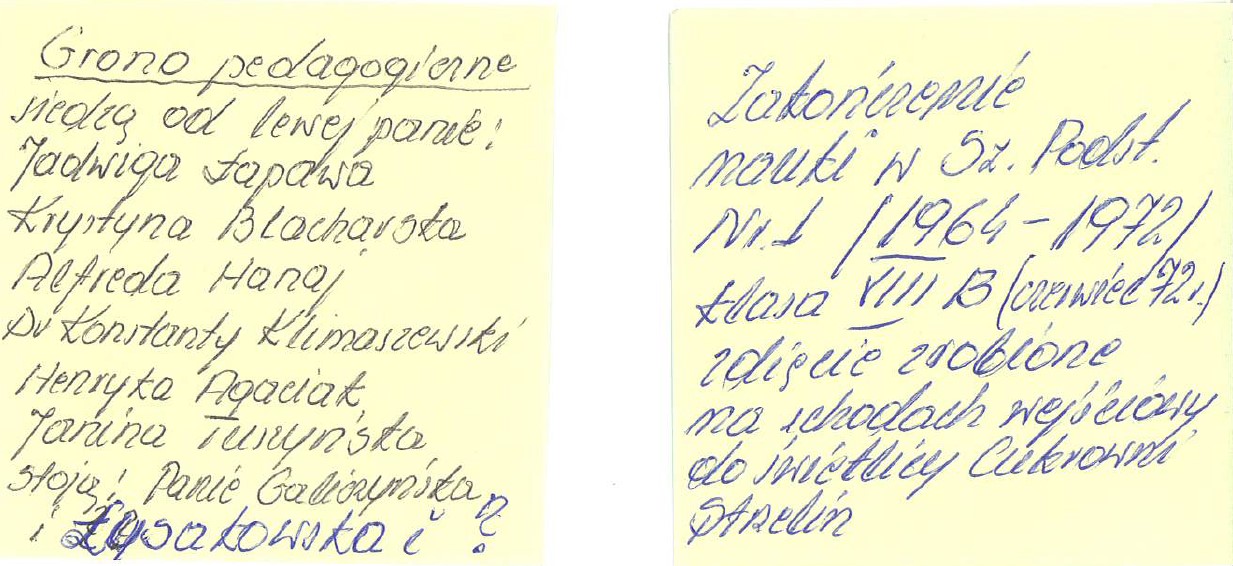 Grono pedagogiczne
siedzą od lewej panie:
Jadwiga Łapawa
Krystyna Blacharska
Alfreda Hanaj
Dr Konstanty Klimaszewski
Henryka Agaciak
Janina Tuszyńska
stoją: Panie Galiczyńska
i Łysakowska i ?
Zakończenie
nauki w Sz. Podst.
Nr. 1 (1964-1972)
klasa VIII B (czerwiec 72 r.)
zdięcie zrobione
na schodach wejściowy
do świetlicy Cukrowni
Strzelin